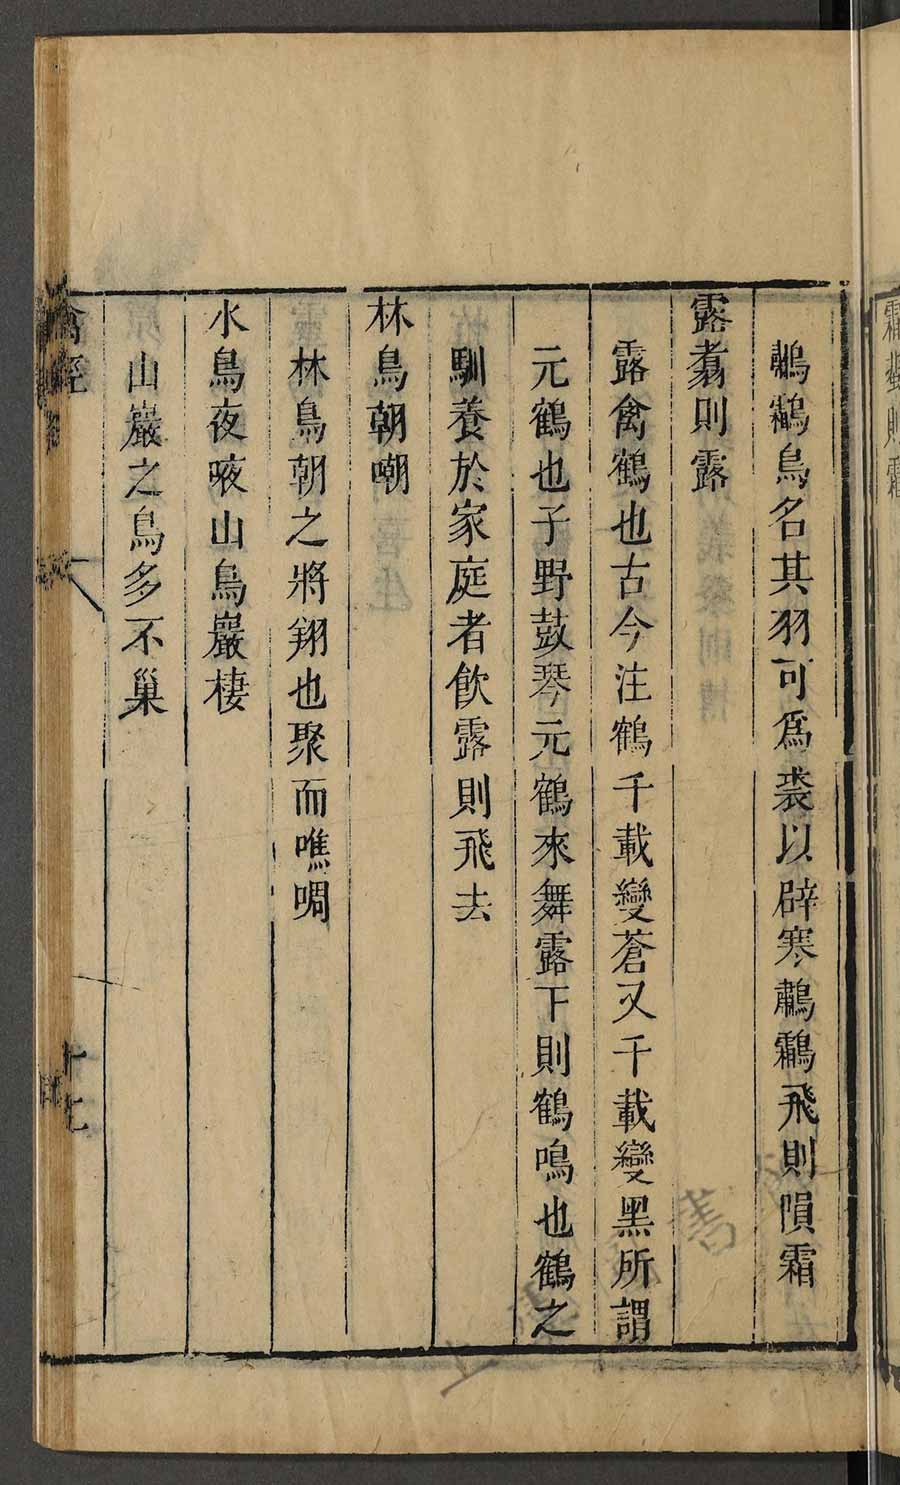 鷫鸘鳥名其羽可爲裘以辟寒鷫鸘飛則隕霜
露翥則露
露禽鶴也古今注鶴千載變蒼又千載變黑所謂
元鶴也子野鼓琴元鶴來舞露下則鶴鳴也鶴之
馴養於家庭者飲露則飛去
林鳥朝嘲
林鳥朝之將翔也聚而噍啁
水鳥夜㖡山鳥巖棲
山巖之鳥多不巢
禽經
十七